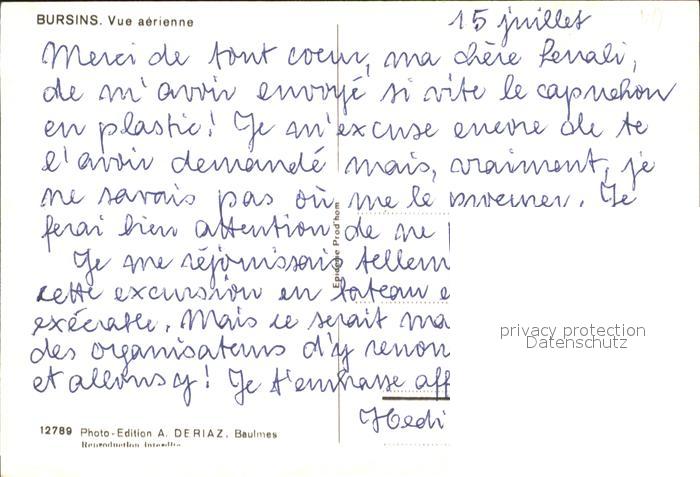 BURSINS. Vue aérienne
15 juillet
Merci de tout coeur, ma chère Renali,
de m'avoir envoyé si vite le capuchon
en plastic! Je m'excuse encore de te
l'avoir demandé mais, vraiment, je
ne savais pas où me le procurer. Je
ferai bien attention de ne
Je me réjouissais tellem
cette excursion en bateau e
exécrable. Mais ce serait ma
des organisateurs d'y renon
et allons y! Je t'embrasse aff
Hedi
Epidome Prod'hom
privacy protection
Datenschutz
12789 Photo-Edition A. DERIAZ, Baulmes
Reproduction interdite